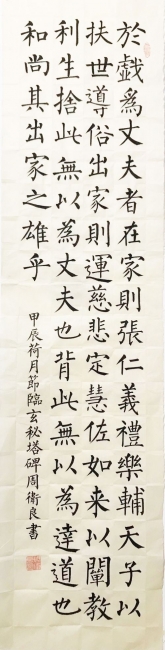 於戲為丈夫者在家則張仁義禮樂輔天子以
扶世導俗出家則運慈悲定慧佐如来以闡教
利生捨此無以為丈夫也背此無以為達道也
和尚其出家之雄乎
甲辰荷月節臨玄秘塔碑周衛良書